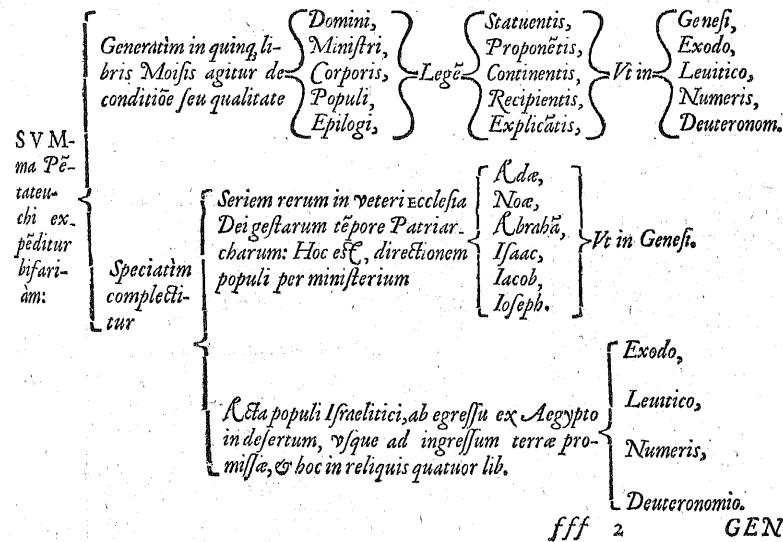 SVM-
ma Pẽ-
tateu-
chi ex-
pẽditur
bifari-
àm:
Generatim in quinq; li-
bris Moisis agitur de
conditiõe ſeu qualitate
Domini,
Miniſtri,
Corporis,
Populi,
Epilogi,
Legẽ
Statuentis,
Proponẽtis,
Continentis,
Recipientis,
Explicãtis,
Vt in
Geneſi,
Exodo,
Leuitico,
Numeris,
Deuteronom.
Speciatìm
complecti-
tur
Seriem rerum in veteri Eccleſia
Dei geſtarum tẽpore Patriar-
charum: Hoc eſt, directionem
populi per miniſterium
Adæ,
Noæ,
Abrahã,
Iſaac,
Iacob,
Ioſeph.
Vt in Geneſi.
Acta populi Iſraelitici, ab egreſſu ex Aegypto
in deſertum, vſque ad ingreſſum terræ pro-
miſſæ, & hoc in reliquis quatuor lib.
Exodo,
Leuitico,
Numeris,
Deuteronomio.
fff 2 GEN